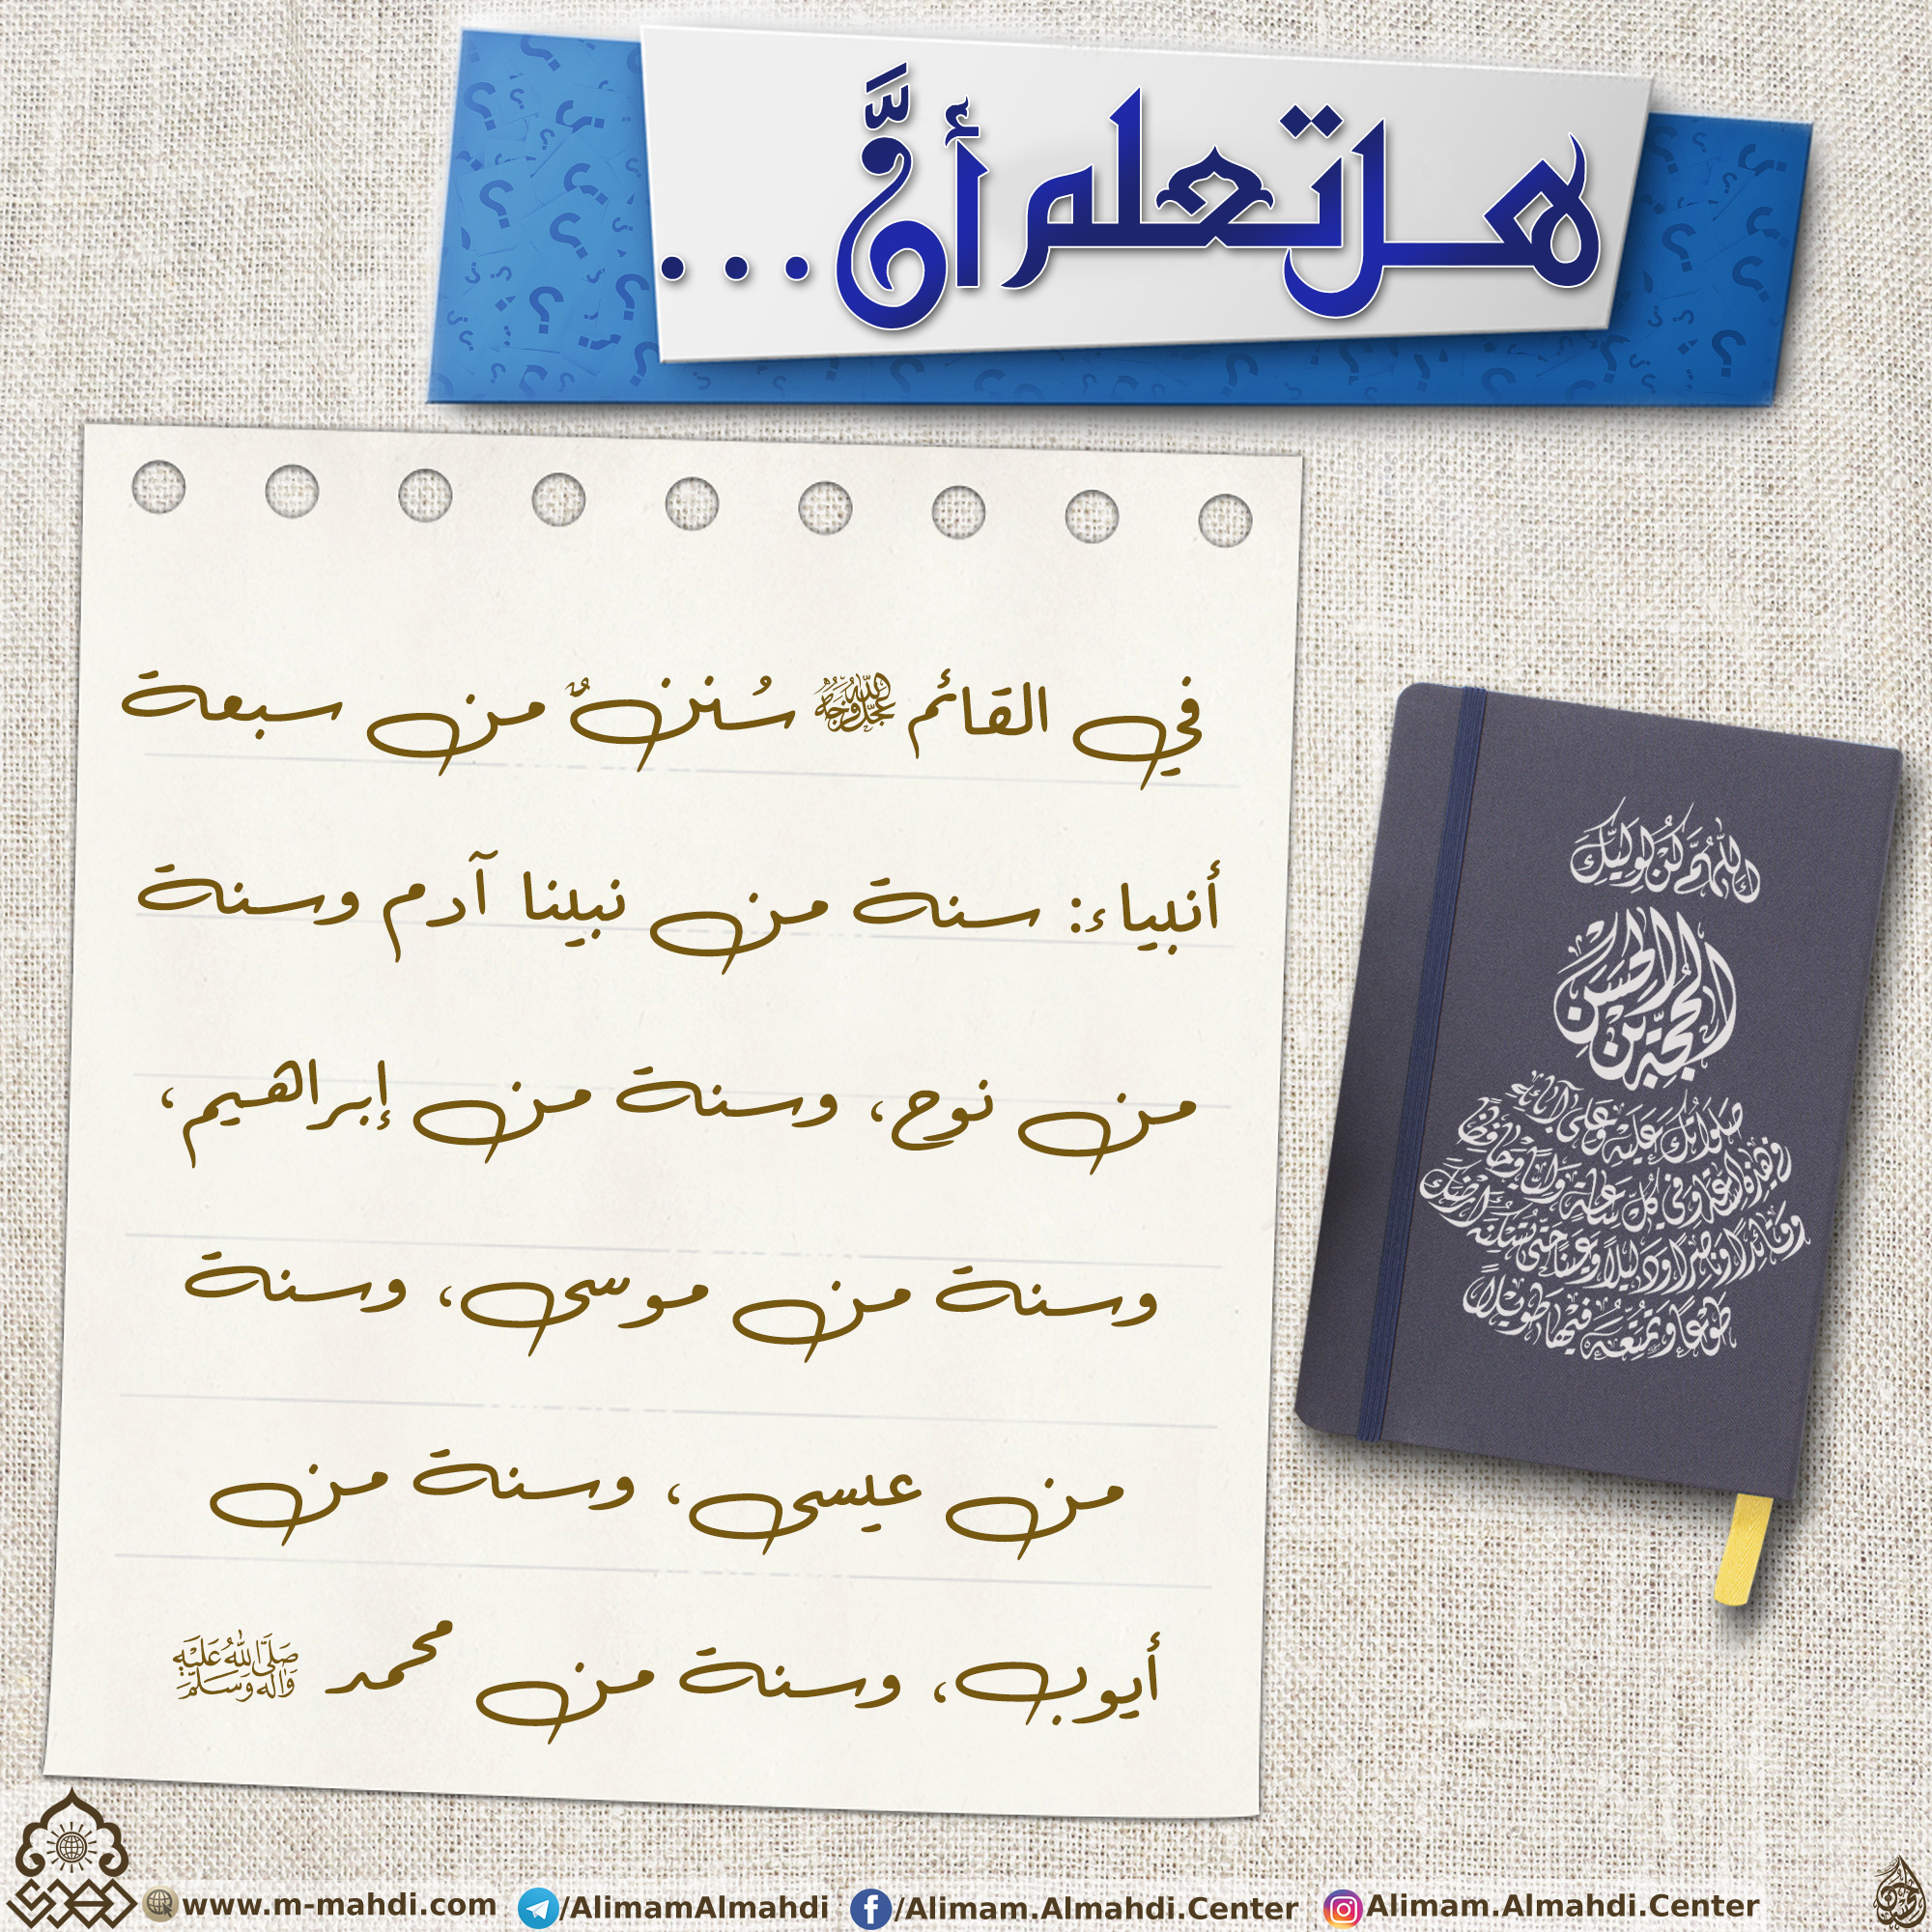 هل تعلم أنَّ...
في القائم عجل الله فرجه سُننٌ من سبعة
أنبياء: سنة من نبينا آدم وسنة
من نوح، وسنة من إبراهيم،
وسنة من موسى، وسنة
من عيسى، وسنة من
أيوب، وسنة من محمد صَلَّى اللهُ عَلَيْهِ وَآلِهِ وَسَلَّم
اللهُمَّ كُنْ لِوَلِيِّكَ
الحُجَّةِ بْنِ الحَسَنِ
صَلَواتُكَ عَلَيْهِ وَعَلى آبائِهِ
في هذِهِ السَّاعَةِ وَفي كُلِّ سَاعَةٍ وَلِيّاً وَحافِظاً
وَقائِداً وَناصِراً وَدَليلاً وَعَيْناً حَتّى تُسْكِنَهُ أَرْضَكَ
طَوْعاً وَتُمَتِّعَهُ فيها طَويلاً
www.m-mahdi.com /AlimamAlmahdi /Alimam.Almahdi.Center Alimam.Almahdi.Center